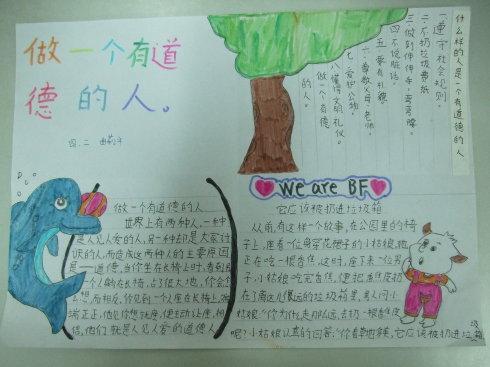 做一个有道
德的人。
四.二
什么样的人是一个有道德的人
一遵守社会规则
二不扔垃圾费纸
三做到伸伸手,弯弯腰
四不说脏话。
五要有礼貌
六尊敬父母、老师
七爱惜公物。
八懂得文明礼仪。
做一个有道德
的人。
we are BF
做一个有道德的人
世界上有两种人,一种
是人见人爱的,另一种却是大家讨
厌的人而造成这两种人的主要原因
是——道德,当你坐在长椅上时,看到
一个人躺在长椅,占了很大地,你会怎么
想。而相反,你见到一个人坐在长椅上,
端正正,他见你想就座,便主动让座,相
信,他们就是人见人爱的道德人
它应该被扔进垃圾箱
从前,有这样一个故事,在公园里的椅
子上,座着一位身穿花裙子的小姑娘,她
正在吃一根香蕉,这时,座下来一位男
子,小姑娘吃完香蕉,便把香蕉皮扔
在了离这儿很远的垃圾箱里,男人问小
姑娘:"你为什么走那么远,去扔一根香蕉皮
呢?小姑娘认真的回答:"你看草地多美,它应该被扔进垃圾箱